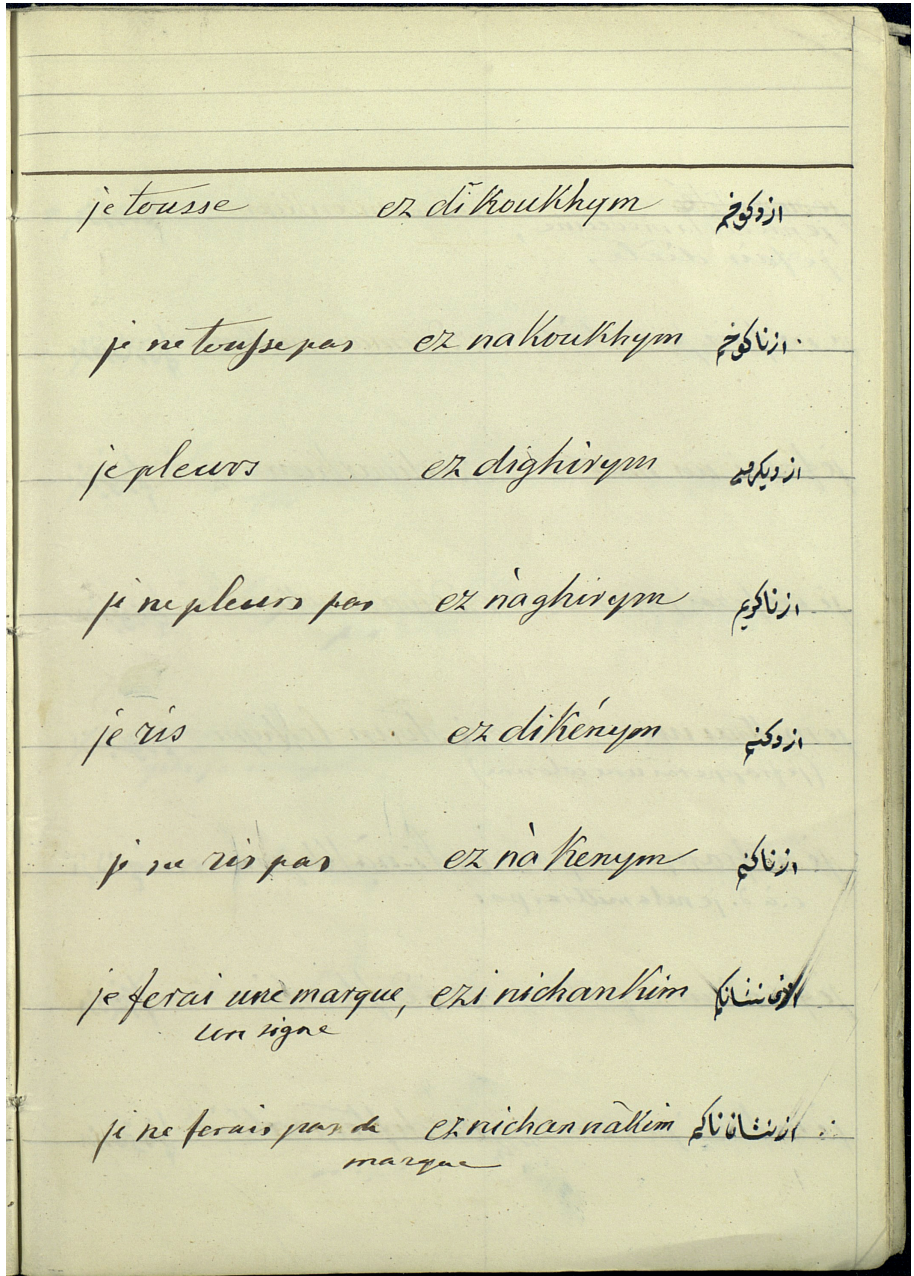 je tousse ez dĭkoukhym ازدكوخم
je ne tousse pas ez nakoukhym ازناكوخم
je pleurs ez dighirym
je ne pleurs pas ez nàghirym ازناكريم
je ris ez dikénym ازدكنم
je ne ris pas ez nà kenym ازناكنم
je ferai une marque, ezi nichankim
un signe
je ne ferais pas de ez nichan nàkim ازنشان ناكم
marque